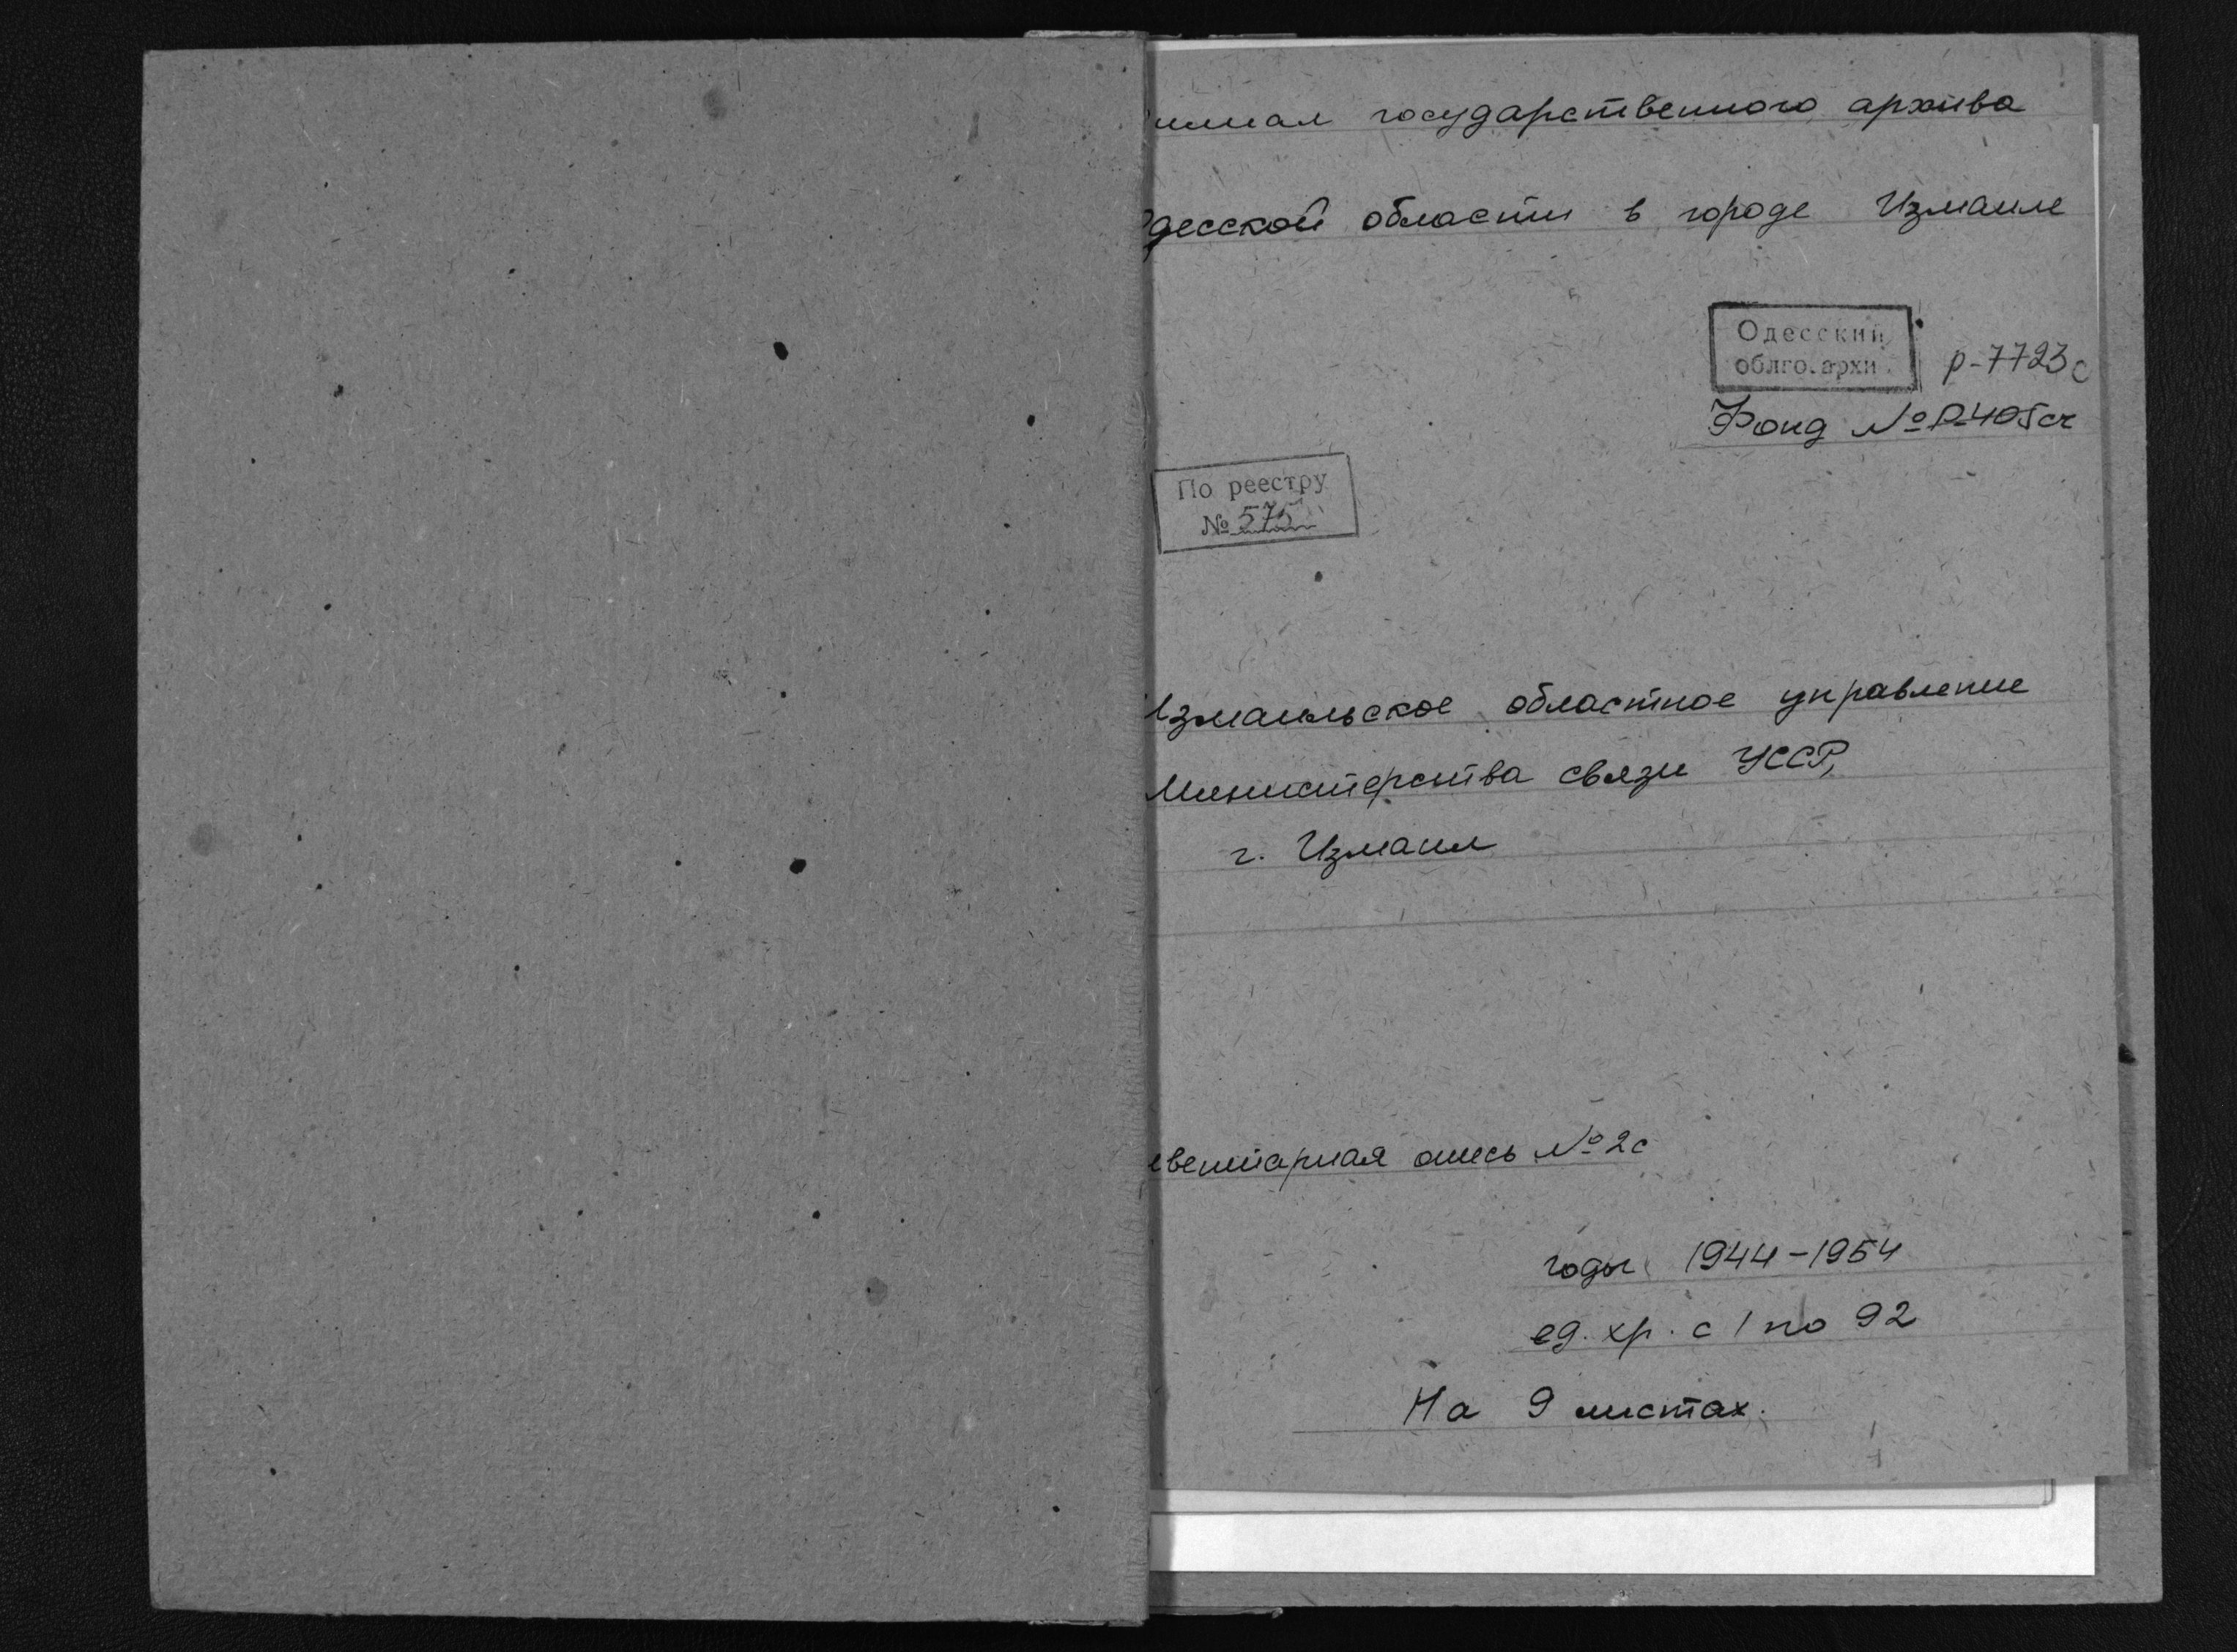 илиал государственного архива
Одесской области в городе Измаиле
Одесский
облго.архи.
р-7723с
Фонд № Р-405сч
По реестру
№ 575
Измаильское областное управление
Министерства связи УССР,
г. Измаил
вентарная опись № 2с
годы 1944-1954
ед. хр. с 1 по 92
На 9 листах.